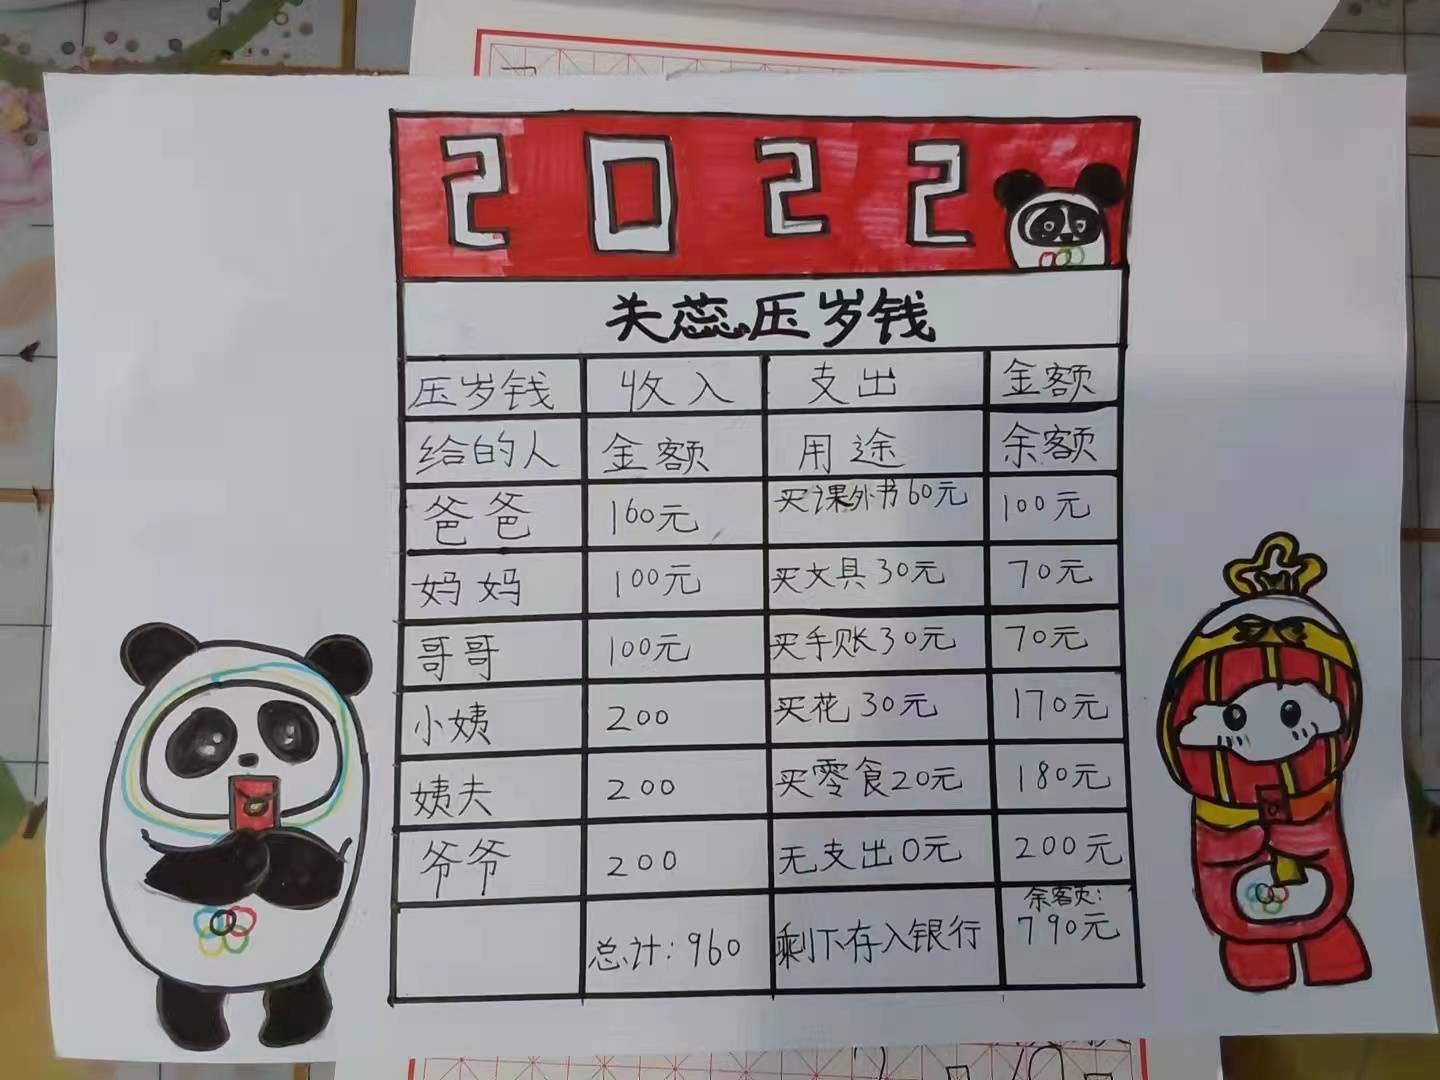 2022
关蕊压岁钱
压岁钱 收入 支出 金额
给的人 金额 用途 余额
爸爸 160元 买课外书60元 100元
妈妈 100元 买文具30元 70元
哥哥 100元 买手账30元 70元
小姨 200 买花30元 170元
姨夫 200 买零食20元 180元
爷爷 200 无支出0元 200元
总计:960 剩下存入银行 余额: 790元